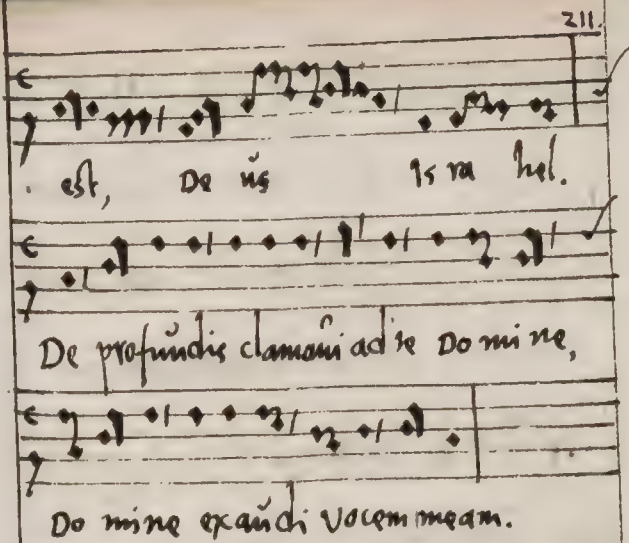 211.
est, De us Is ra hel.
De profundis clamavi ad te Do mi ne,
Do mine exaudi vocem meam.